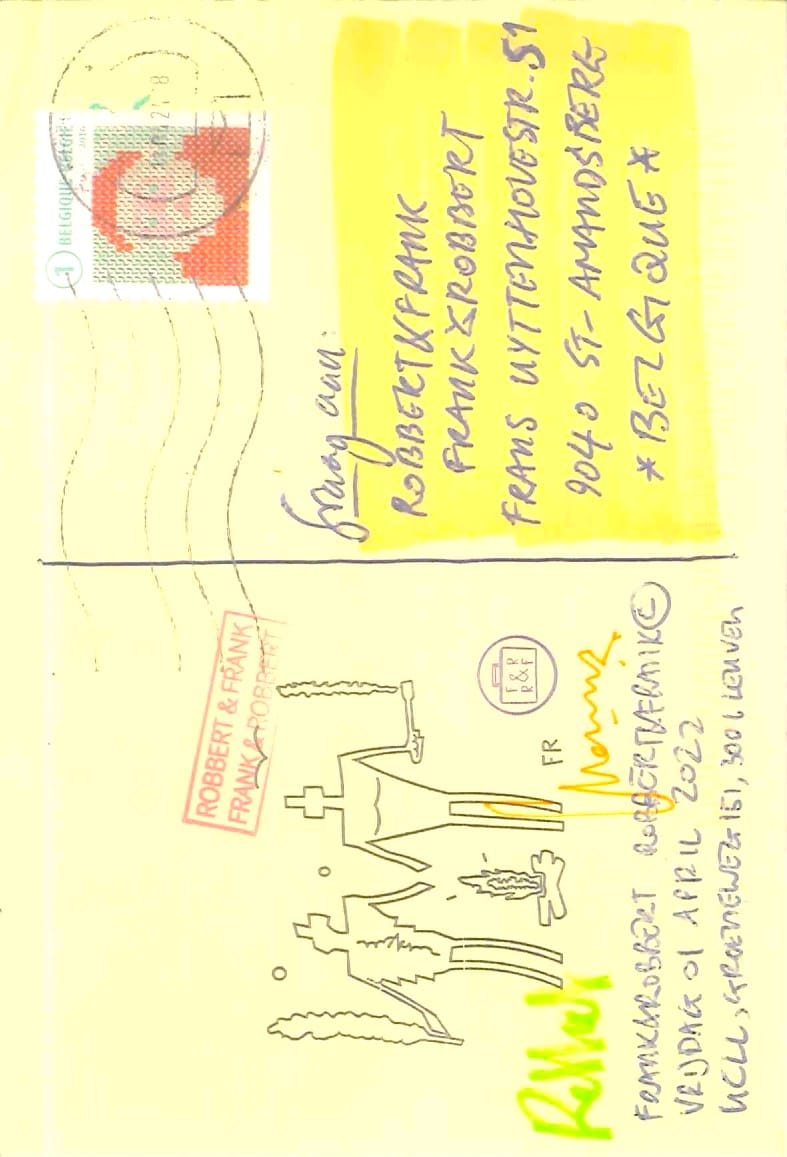 ROBBERT & FRANK
FRANK & ROBBERT
F & R
R & F
FR
FRANK&ROBBERT ROBBERT&FRANK ©
VRIJDAG 01 APRIL 2022
UCLL, GROENEWEG 151, 3001 LEUVEN
1 BELGIQUE BELGIË
2016
graag aan:
ROBBERT&FRANK
FRANK&ROBBERT
FRANS UYTTENHOVESTR. 51
9040 ST-AMANDSBERG
*BELGIQUE*